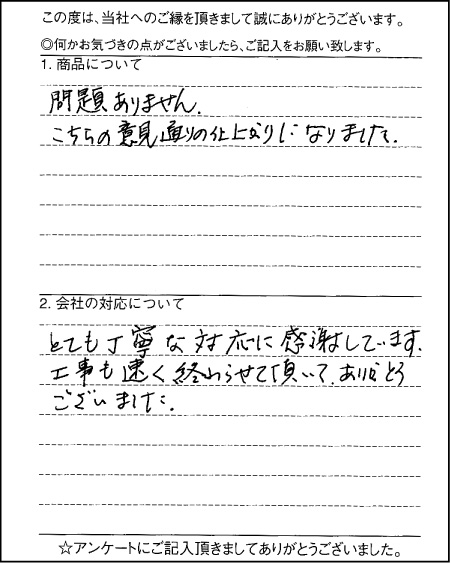 この度は、当社へのご縁を頂きまして誠にありがとうございます。
◎何かお気づきの点がございましたら、ご記入をお願い致します。
1. 商品について
問題ありません.
こちらの意見通りの仕上がりになりました.
2. 会社の対応について
とても丁寧な対応に感謝しています.
工事も速く終わらせて頂いて、ありがとう
ございました.
☆アンケートにご記入頂きましてありがとうございました。